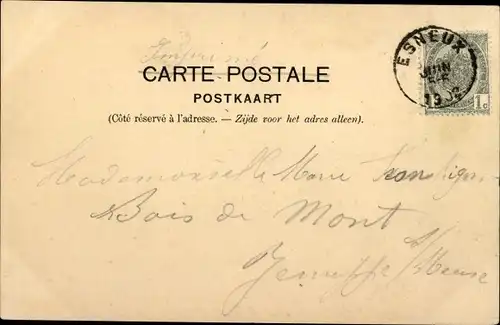 Imprimé
ESNEUX
JUIN
1902
1c
CARTE POSTALE
POSTKAART
(Côté réservé à l'adresse. — Zijde voor het adres alleen).
Mademoiselle Marie
Bois de Mont
Jemeppe s/Meuse